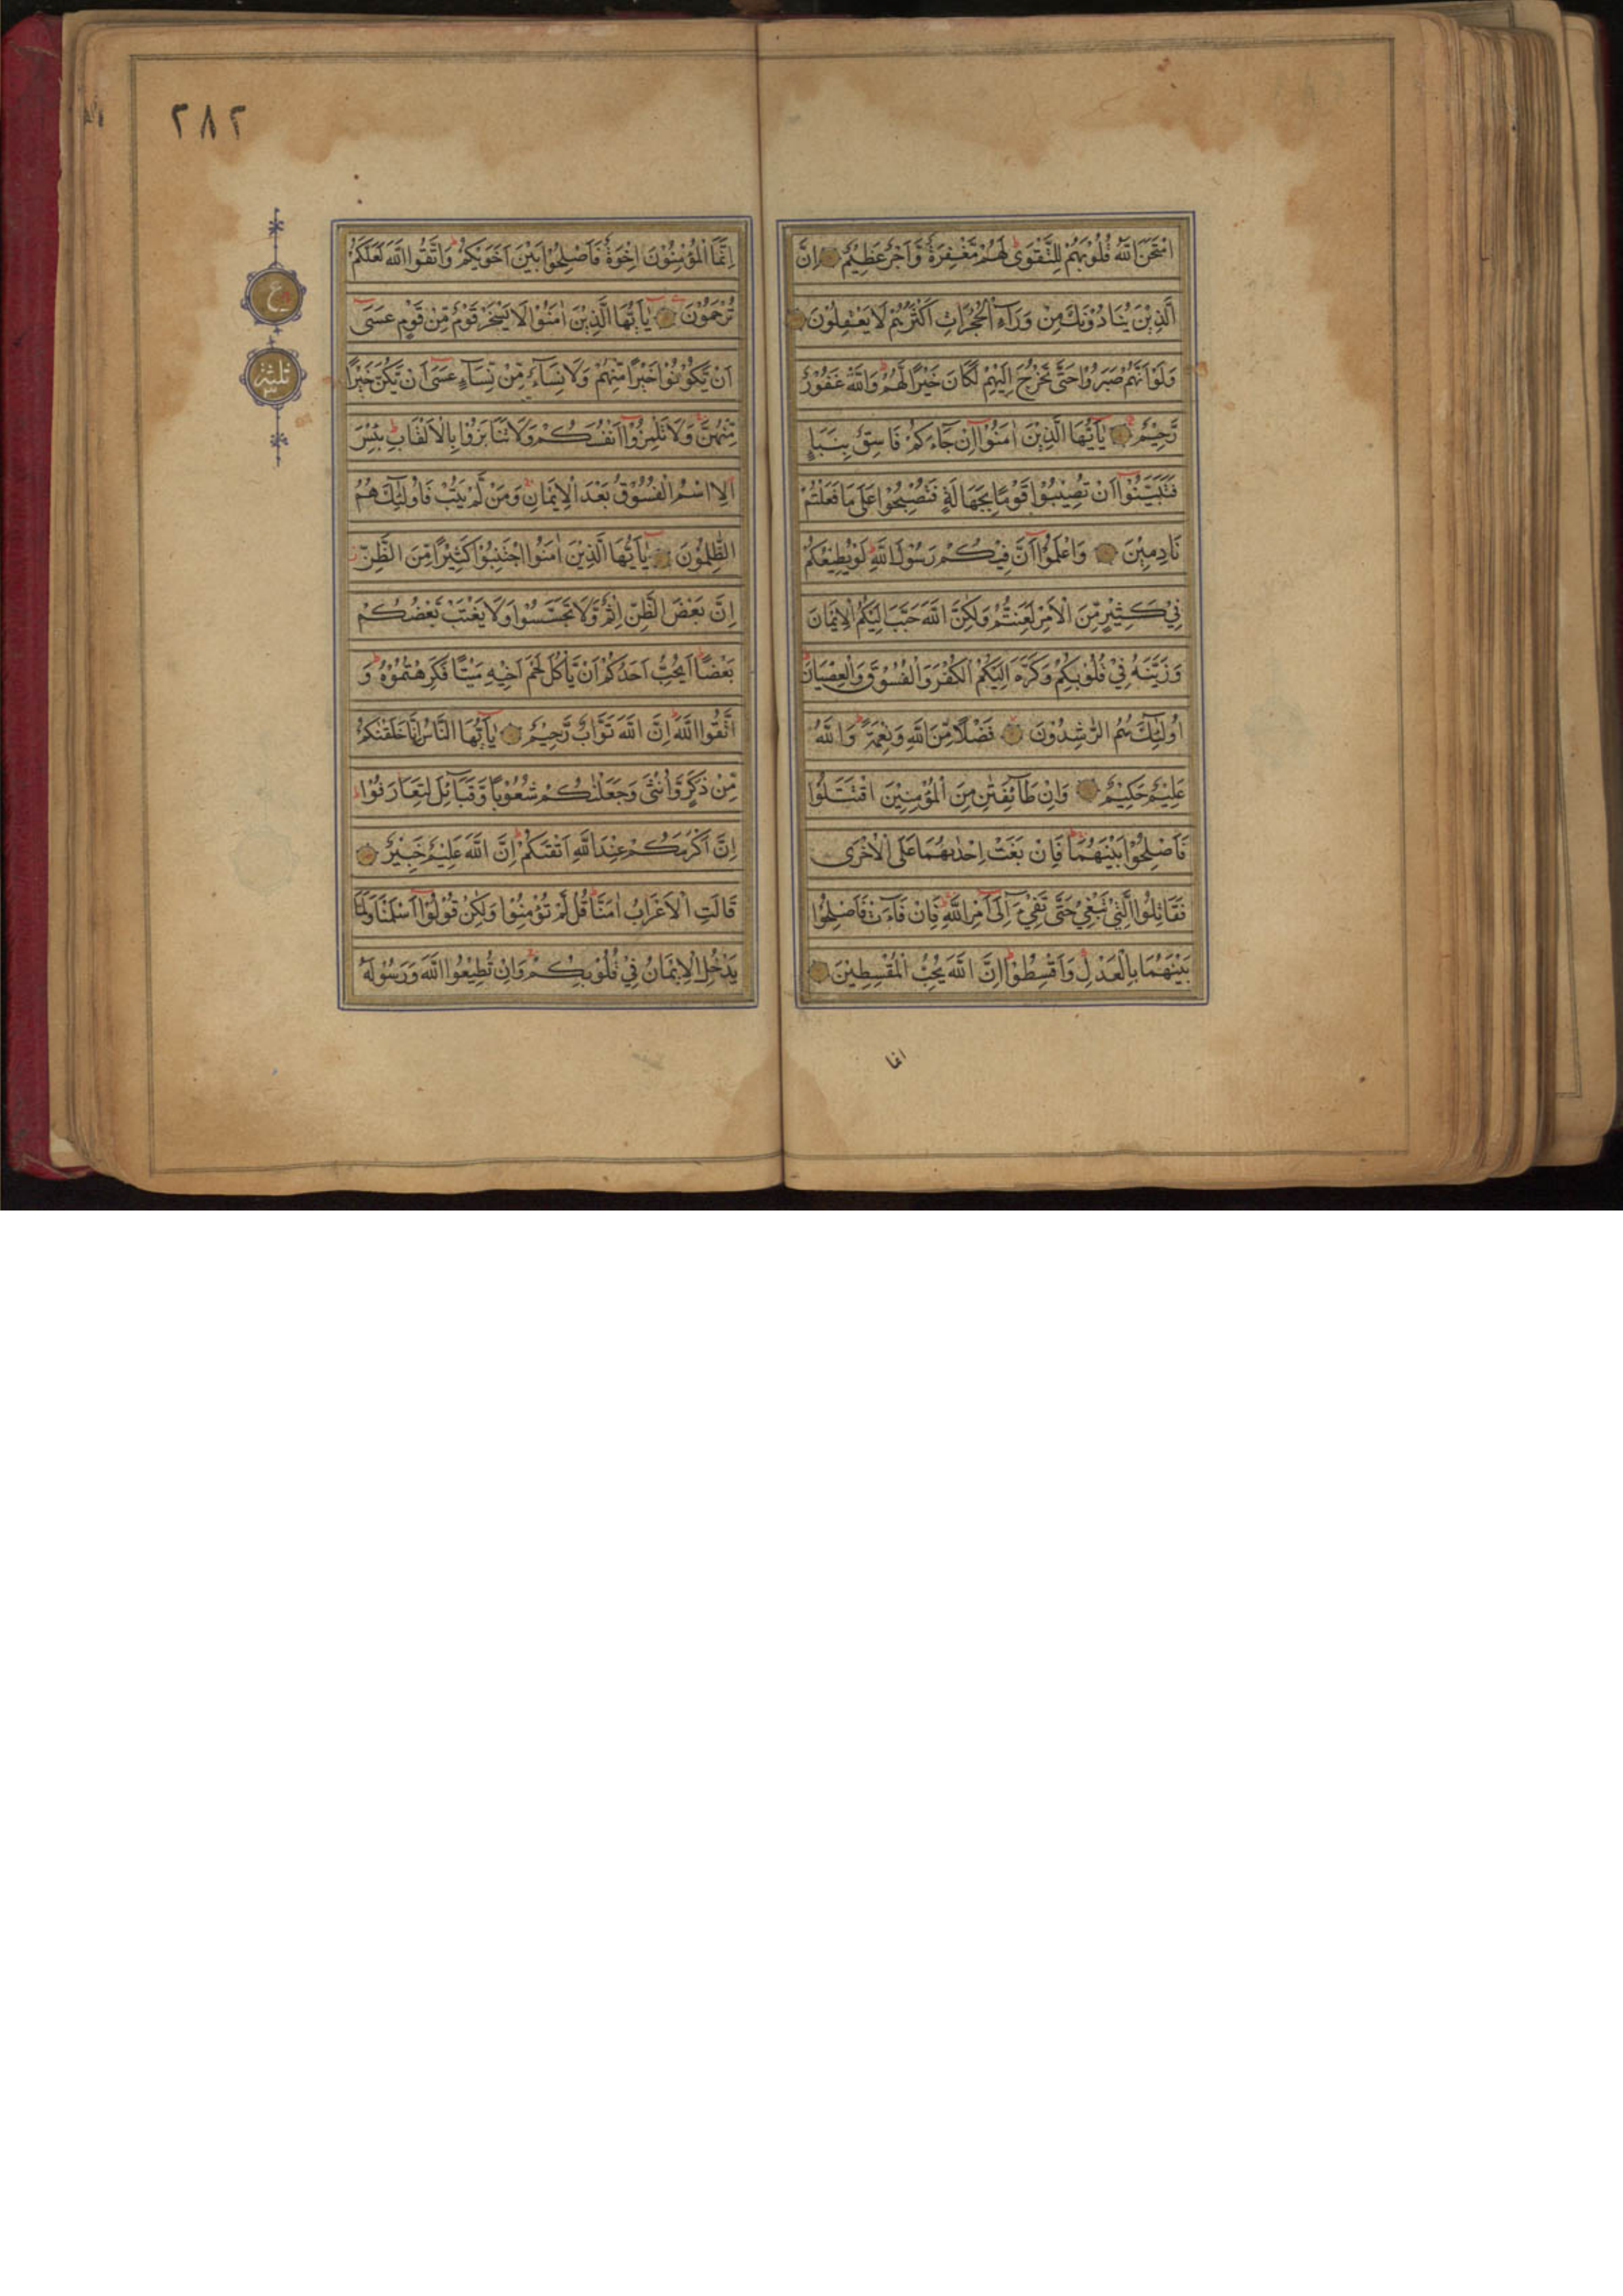 امْتَحَنَ اللّٰهُ قُلُوْبَهُمْ لِلتَّقْوٰى لَهُمْ مَّغْفِرَةٌ وَّاَجْرٌ عَظِيْمٌ اِنَّ
الَّذِيْنَ يُنَادُوْنَكَ مِنْ وَرَآءِ الْحُجُرَاتِ اَكْثَرُهُمْ لَا يَعْقِلُوْنَ
وَلَوْ اَنَّهُمْ صَبَرُوْا حَتّٰى تَخْرُجَ اِلَيْهِمْ لَكَانَ خَيْرًا لَّهُمْ وَاللّٰهُ غَفُوْرٌ
رَّحِيْمٌ يٰٓاَيُّهَا الَّذِيْنَ اٰمَنُوْٓا اِنْ جَآءَكُمْ فَاسِقٌ بِنَبَاٍ
فَتَبَيَّنُوْٓا اَنْ تُصِيْبُوْا قَوْمًا بِجَهَالَةٍ فَتُصْبِحُوْا عَلٰى مَا فَعَلْتُمْ
نَادِمِيْنَ وَاعْلَمُوْٓا اَنَّ فِيْكُمْ رَسُوْلَ اللّٰهِ لَوْ يُطِيْعُكُمْ
فِيْ كَثِيْرٍ مِّنَ الْاَمْرِ لَعَنِتُّمْ وَلٰكِنَّ اللّٰهَ حَبَّبَ اِلَيْكُمُ الْاِيْمَانَ
وَزَيَّنَهُ فِيْ قُلُوْبِكُمْ وَكَرَّهَ اِلَيْكُمُ الْكُفْرَ وَالْفُسُوْقَ وَالْعِصْيَانَ
اُولٰٓئِكَ هُمُ الرّٰشِدُوْنَ فَضْلًا مِّنَ اللّٰهِ وَنِعْمَةً وَاللّٰهُ
عَلِيْمٌ حَكِيْمٌ وَاِنْ طَآئِفَتٰنِ مِنَ الْمُؤْمِنِيْنَ اقْتَتَلُوْا
فَاَصْلِحُوْا بَيْنَهُمَا فَاِنْ بَغَتْ اِحْدٰىهُمَا عَلَى الْاُخْرٰى
فَقَاتِلُوا الَّتِيْ تَبْغِيْ حَتّٰى تَفِيْٓءَ اِلٰٓى اَمْرِ اللّٰهِ فَاِنْ فَآءَتْ فَاَصْلِحُوْا
بَيْنَهُمَا بِالْعَدْلِ وَاَقْسِطُوْا اِنَّ اللّٰهَ يُحِبُّ الْمُقْسِطِيْنَ
انما
٢٨٢
اِنَّمَا الْمُؤْمِنُوْنَ اِخْوَةٌ فَاَصْلِحُوْا بَيْنَ اَخَوَيْكُمْ وَاتَّقُوا اللّٰهَ لَعَلَّكُمْ
تُرْحَمُوْنَ يٰٓاَيُّهَا الَّذِيْنَ اٰمَنُوْا لَا يَسْخَرْ قَوْمٌ مِّنْ قَوْمٍ عَسٰٓى
اَنْ يَّكُوْنُوْا خَيْرًا مِّنْهُمْ وَلَا نِسَآءٌ مِّنْ نِّسَآءٍ عَسٰٓى اَنْ يَّكُنَّ خَيْرًا
مِّنْهُنَّ وَلَا تَلْمِزُوْٓا اَنْفُسَكُمْ وَلَا تَنَابَزُوْا بِالْاَلْقَابِ بِئْسَ
الِاسْمُ الْفُسُوْقُ بَعْدَ الْاِيْمَانِ وَمَنْ لَّمْ يَتُبْ فَاُولٰٓئِكَ هُمُ
الظّٰلِمُوْنَ يٰٓاَيُّهَا الَّذِيْنَ اٰمَنُوا اجْتَنِبُوْا كَثِيْرًا مِّنَ الظَّنِّ
اِنَّ بَعْضَ الظَّنِّ اِثْمٌ وَّلَا تَجَسَّسُوْا وَلَا يَغْتَبْ بَّعْضُكُمْ
بَعْضًا اَيُحِبُّ اَحَدُكُمْ اَنْ يَّاْكُلَ لَحْمَ اَخِيْهِ مَيْتًا فَكَرِهْتُمُوْهُ وَ
اتَّقُوا اللّٰهَ اِنَّ اللّٰهَ تَوَّابٌ رَّحِيْمٌ يٰٓاَيُّهَا النَّاسُ اِنَّا خَلَقْنٰكُمْ
مِّنْ ذَكَرٍ وَّاُنْثٰى وَجَعَلْنٰكُمْ شُعُوْبًا وَّقَبَآئِلَ لِتَعَارَفُوْا
اِنَّ اَكْرَمَكُمْ عِنْدَ اللّٰهِ اَتْقٰىكُمْ اِنَّ اللّٰهَ عَلِيْمٌ خَبِيْرٌ
قَالَتِ الْاَعْرَابُ اٰمَنَّا قُلْ لَّمْ تُؤْمِنُوْا وَلٰكِنْ قُوْلُوْٓا اَسْلَمْنَا وَلَمَّا
يَدْخُلِ الْاِيْمَانُ فِيْ قُلُوْبِكُمْ وَاِنْ تُطِيْعُوا اللّٰهَ وَرَسُوْلَهٗ
ع
ثلثة